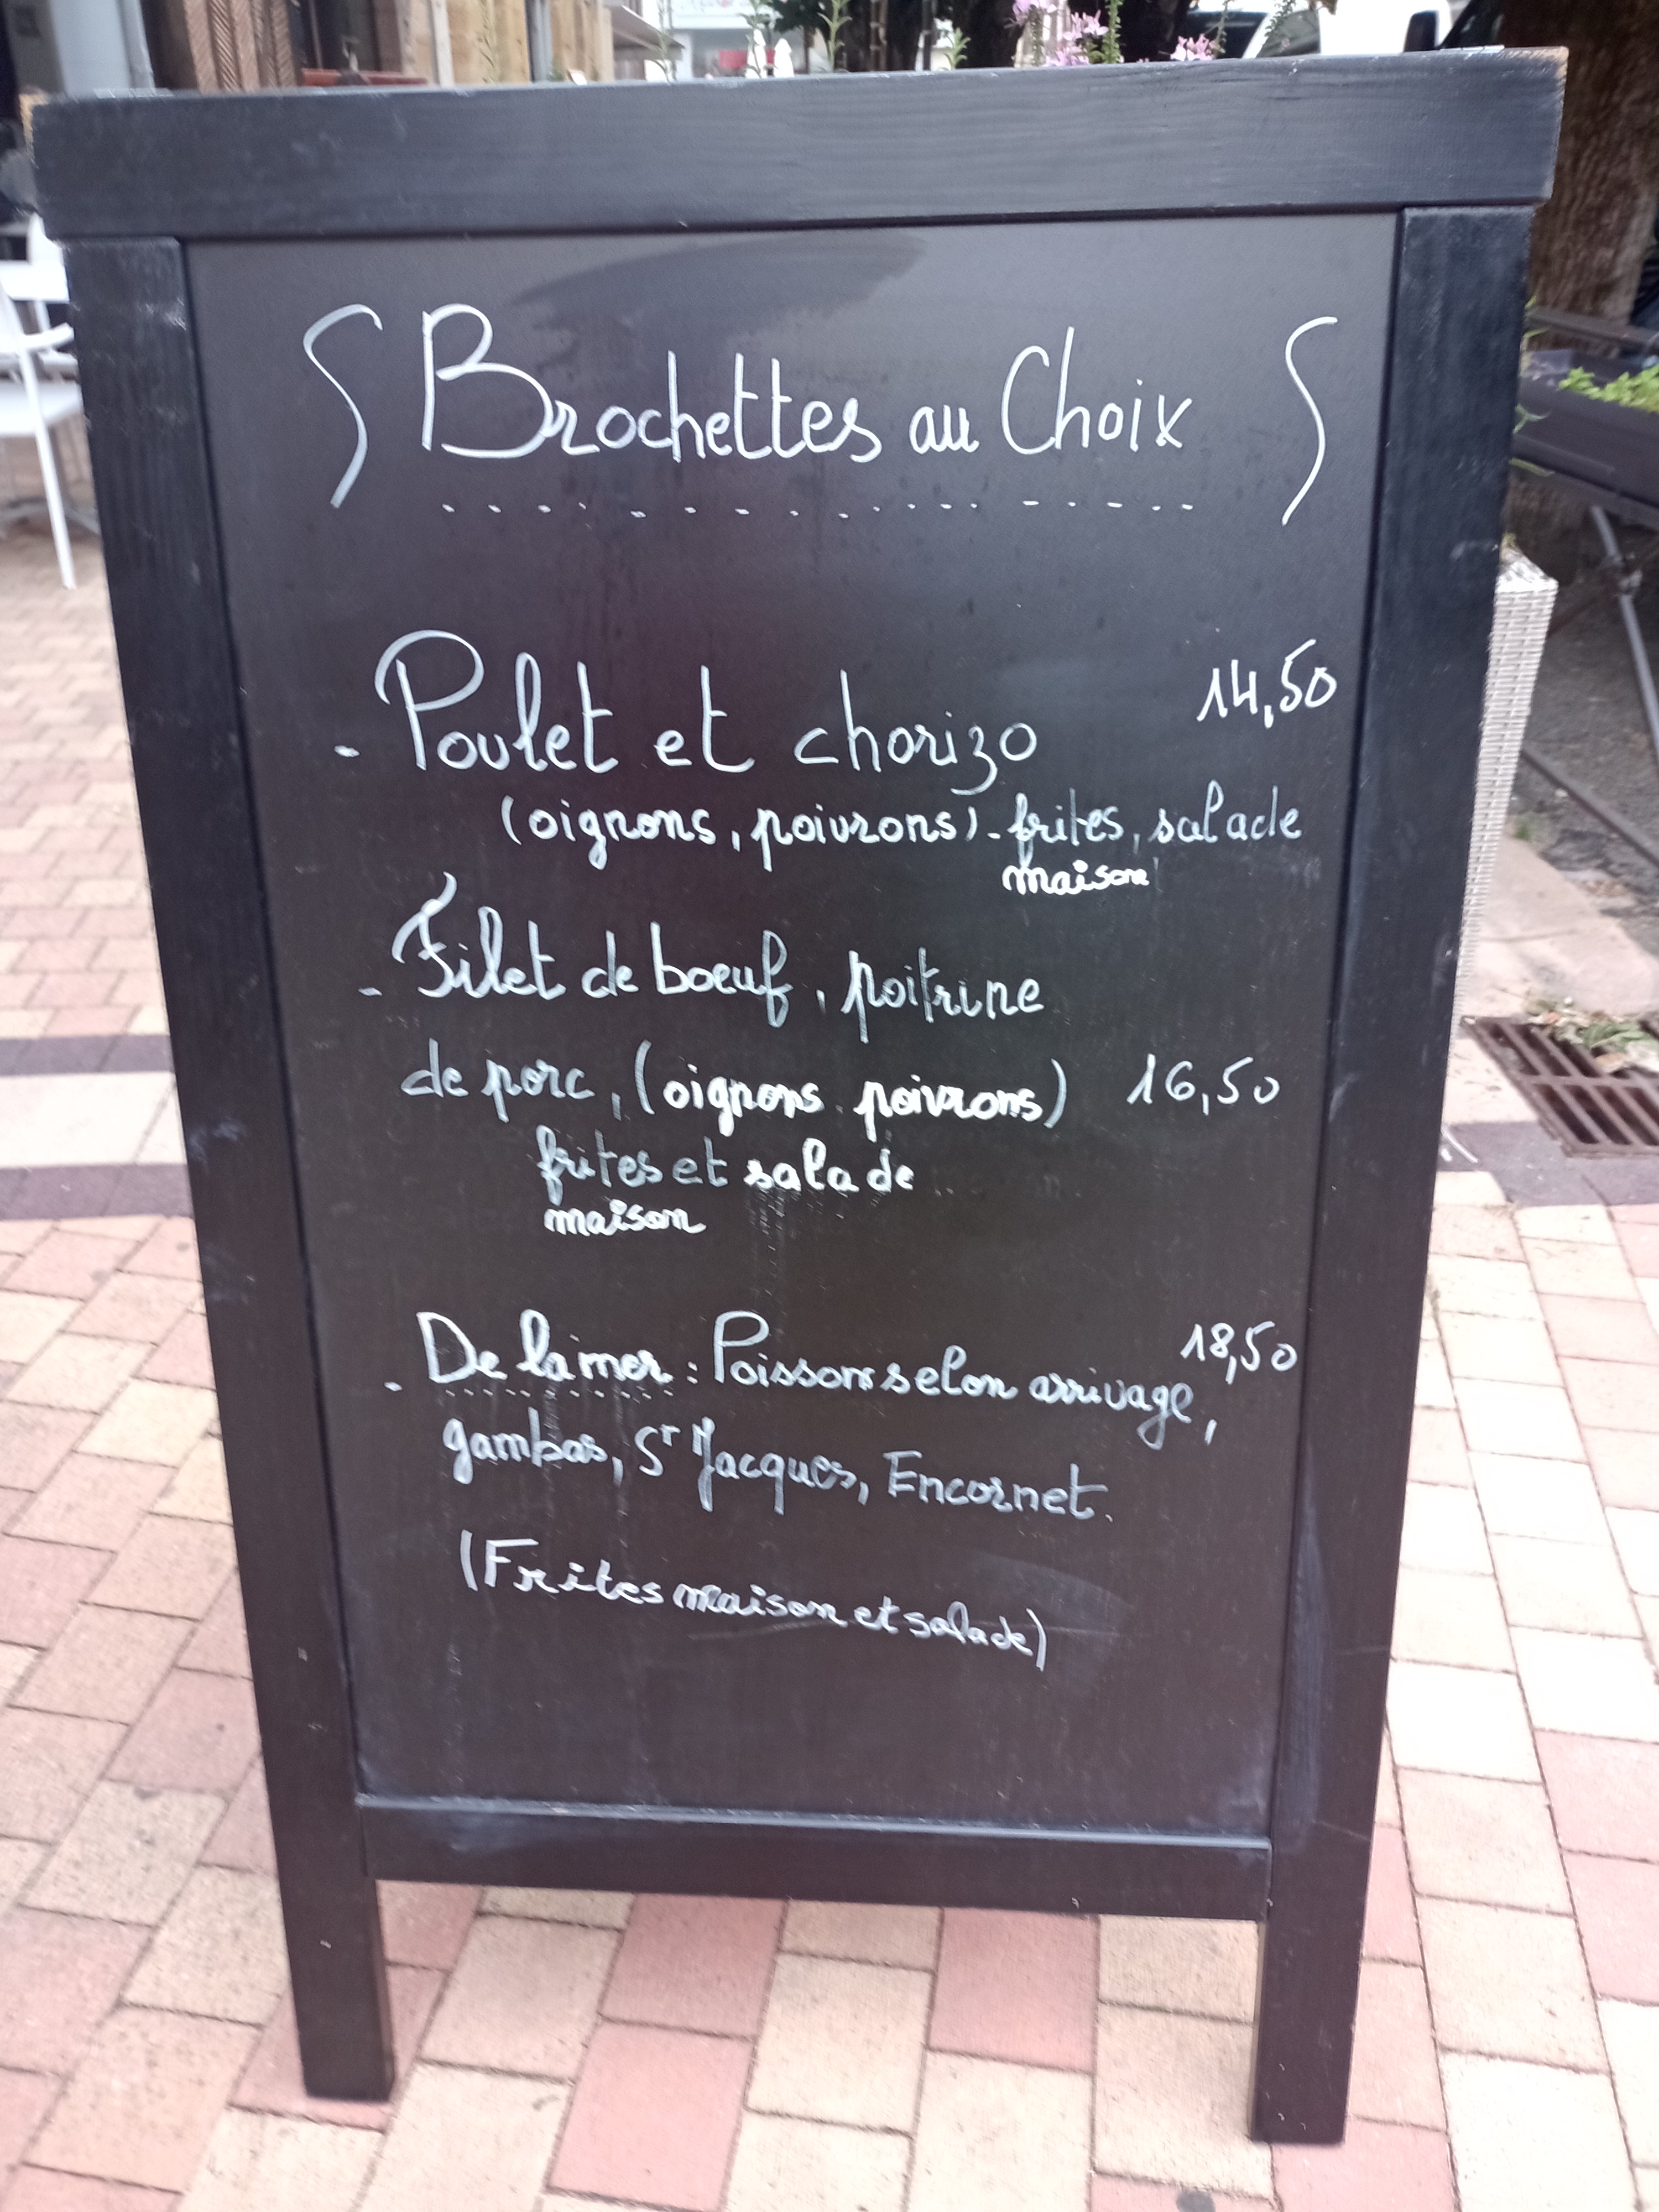 Brochettes au Choix
- Poulet et chorizo 14,50
(oignons, poivrons) - frites, salade
maison
- Filet de boeuf, poitrine
de porc, (oignons poivrons) 16,50
frites et salade
maison
- De la mer : Poisson selon arrivage, 18,50
gambas, St Jacques, Encornet.
(Frites maison et salade)